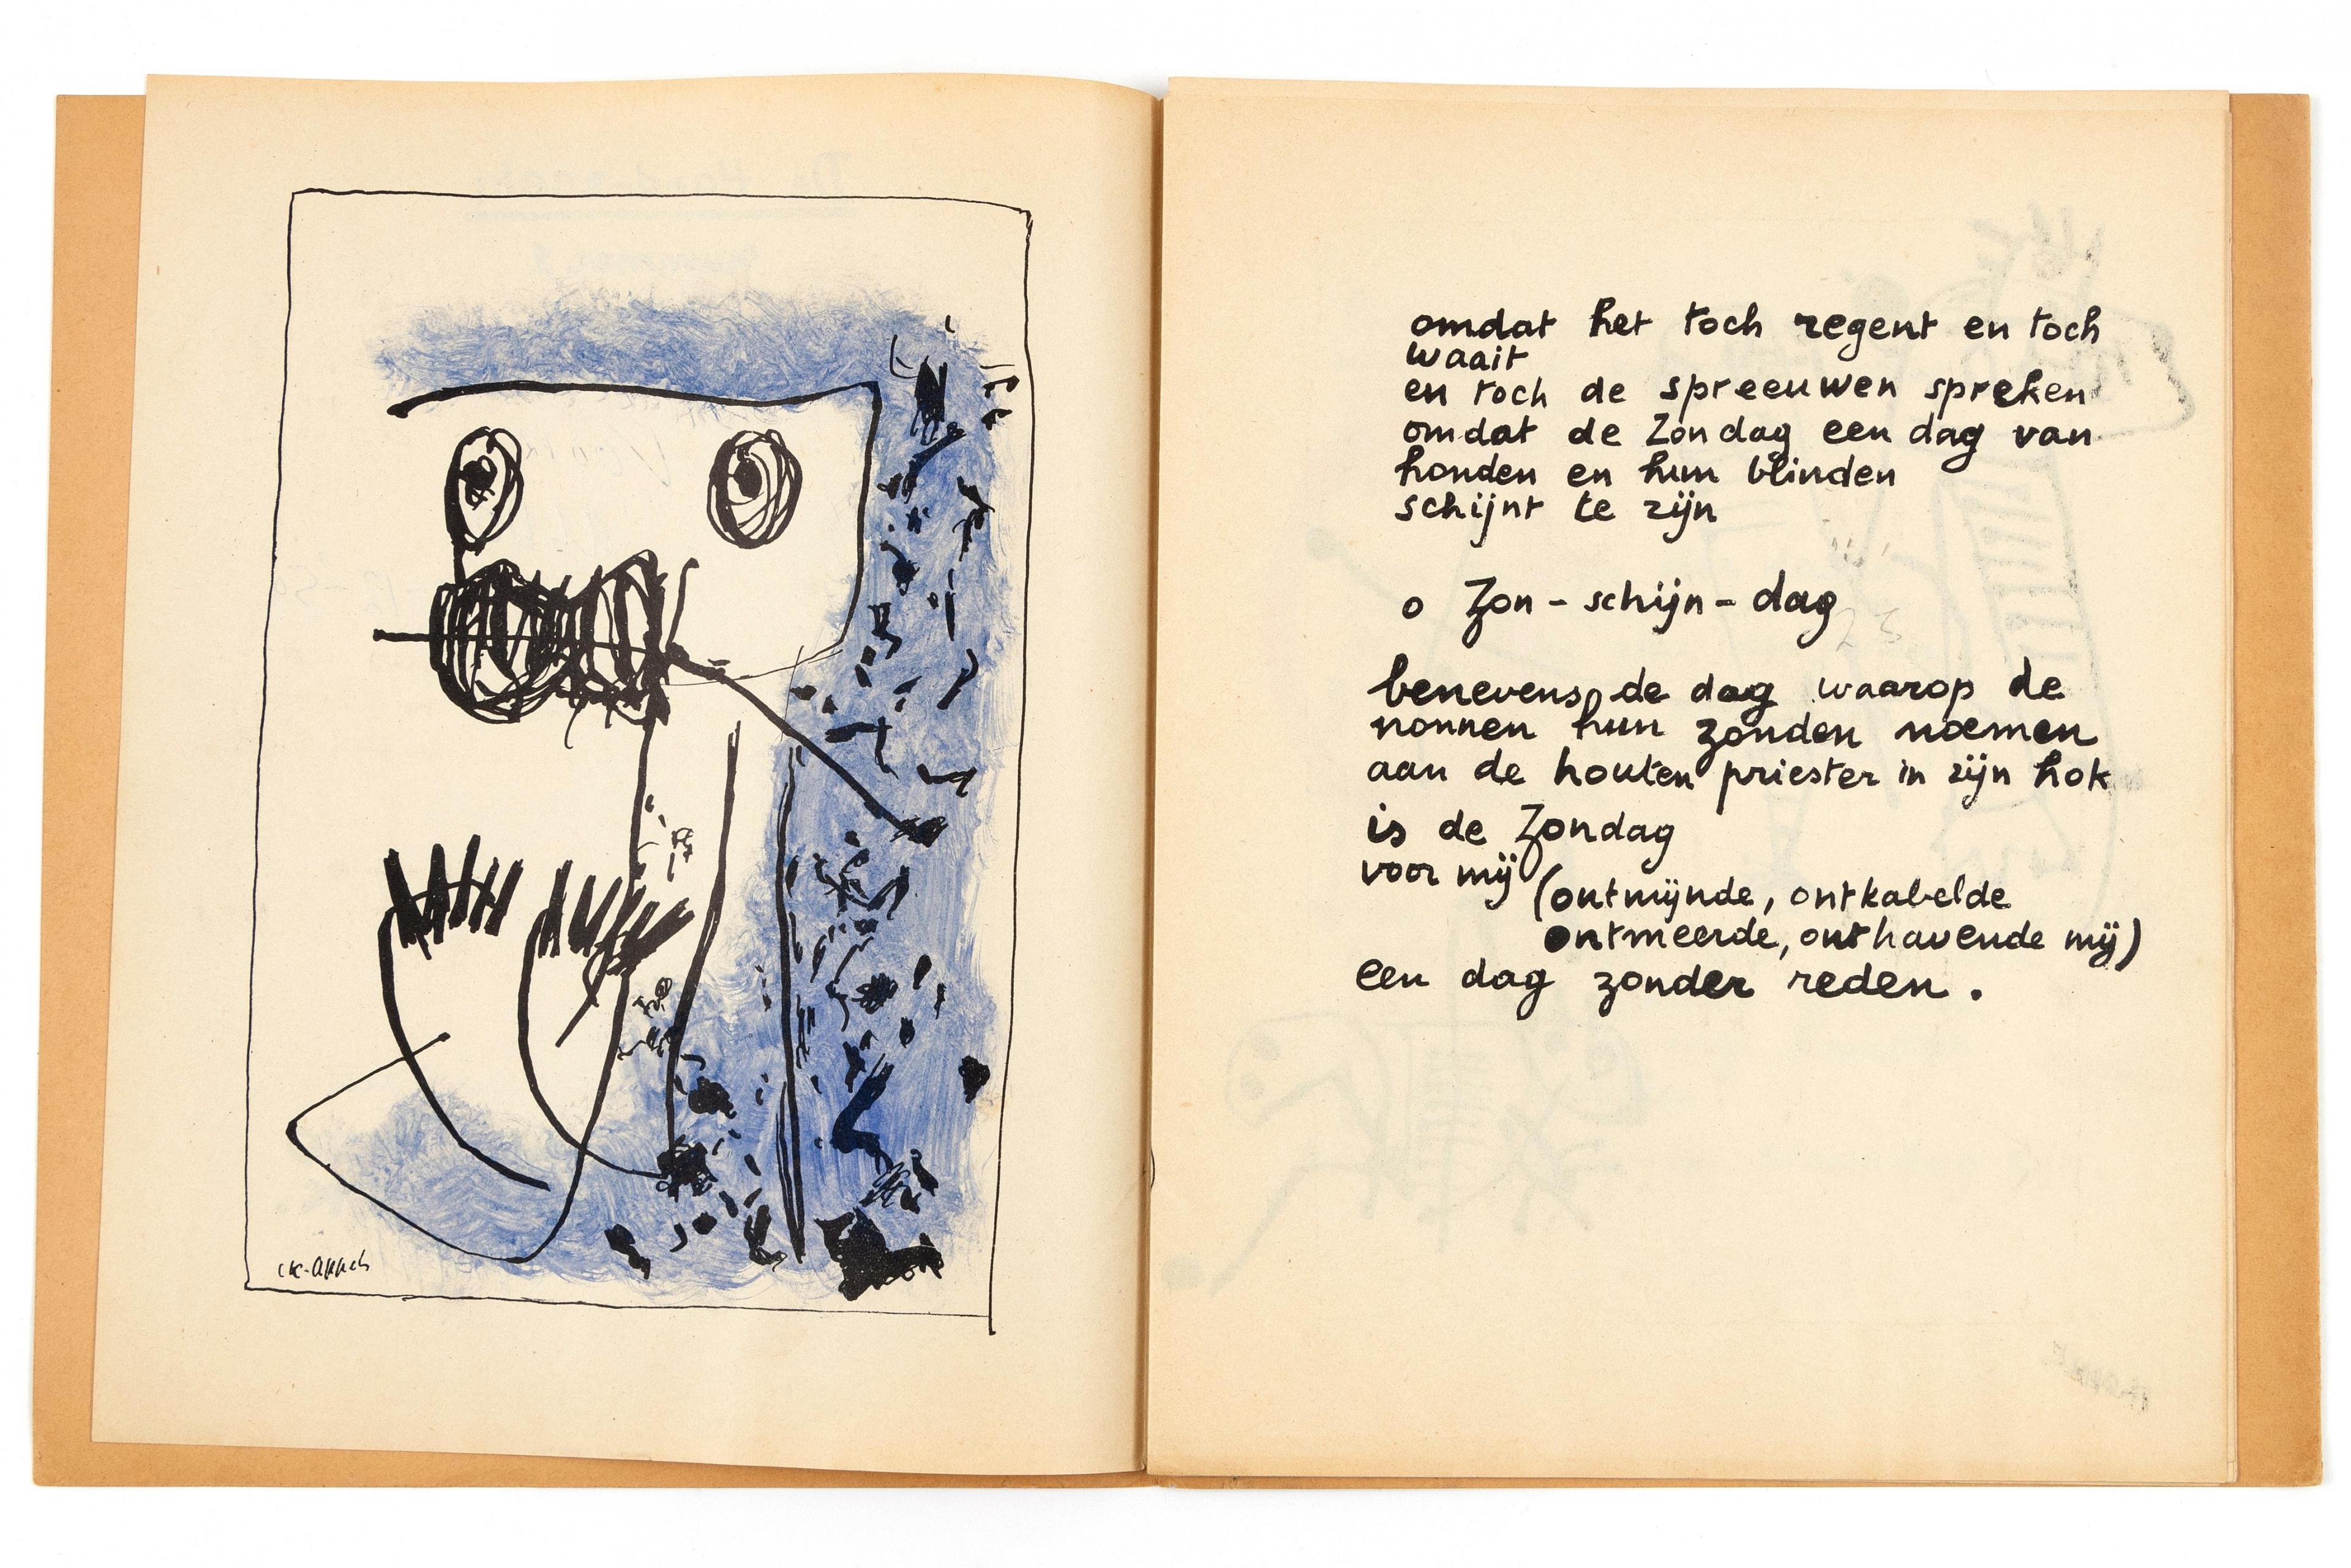 ck. appel
omdat het toch regent en toch
waait
en toch de spreeuwen spreken
omdat de Zondag een dag van
honden en hun blinden
schijnt te zijn
o Zon - schijn - dag
benevens de dag waarop de
nonnen hun zonden noemen
aan de houten priester in zijn hok
is de Zondag
voor mij
(ontmijnde, ontkabelde
ontmeerde, onthavende mij)
een dag zonder reden.